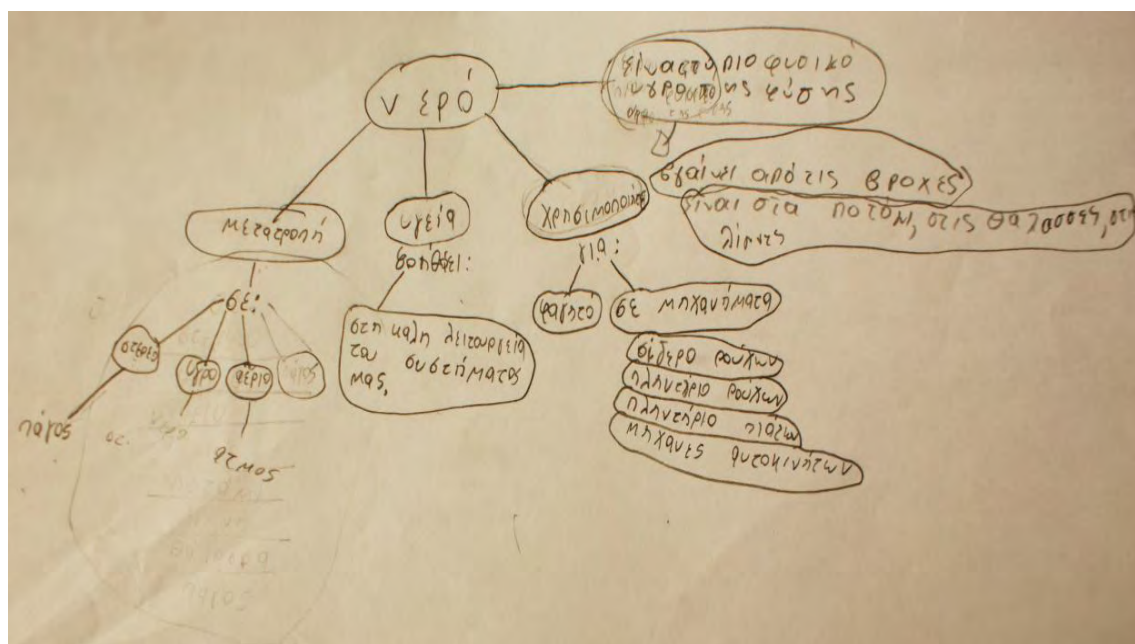 νερό
είναι το πιο φυσικό
της φύσης
βγαίνει από τις βροχές
είναι στα ποτάμ, στις θαλασσες, στι
λίμνες
μετατροπή
σε:
στερεό
υγρό
αέριο
πάγος
ατμος
υγεία
βοηθάει:
στη καλη λειτουργεία
του συστήματος
μας,
χρησιμοποιήτε
για:
φαγητό
σε μηχανήματα
σίδερο ρούχων
πληντήριο ρούχων
πληντήριο πιάτων
μηχανες αυτοκινήτων